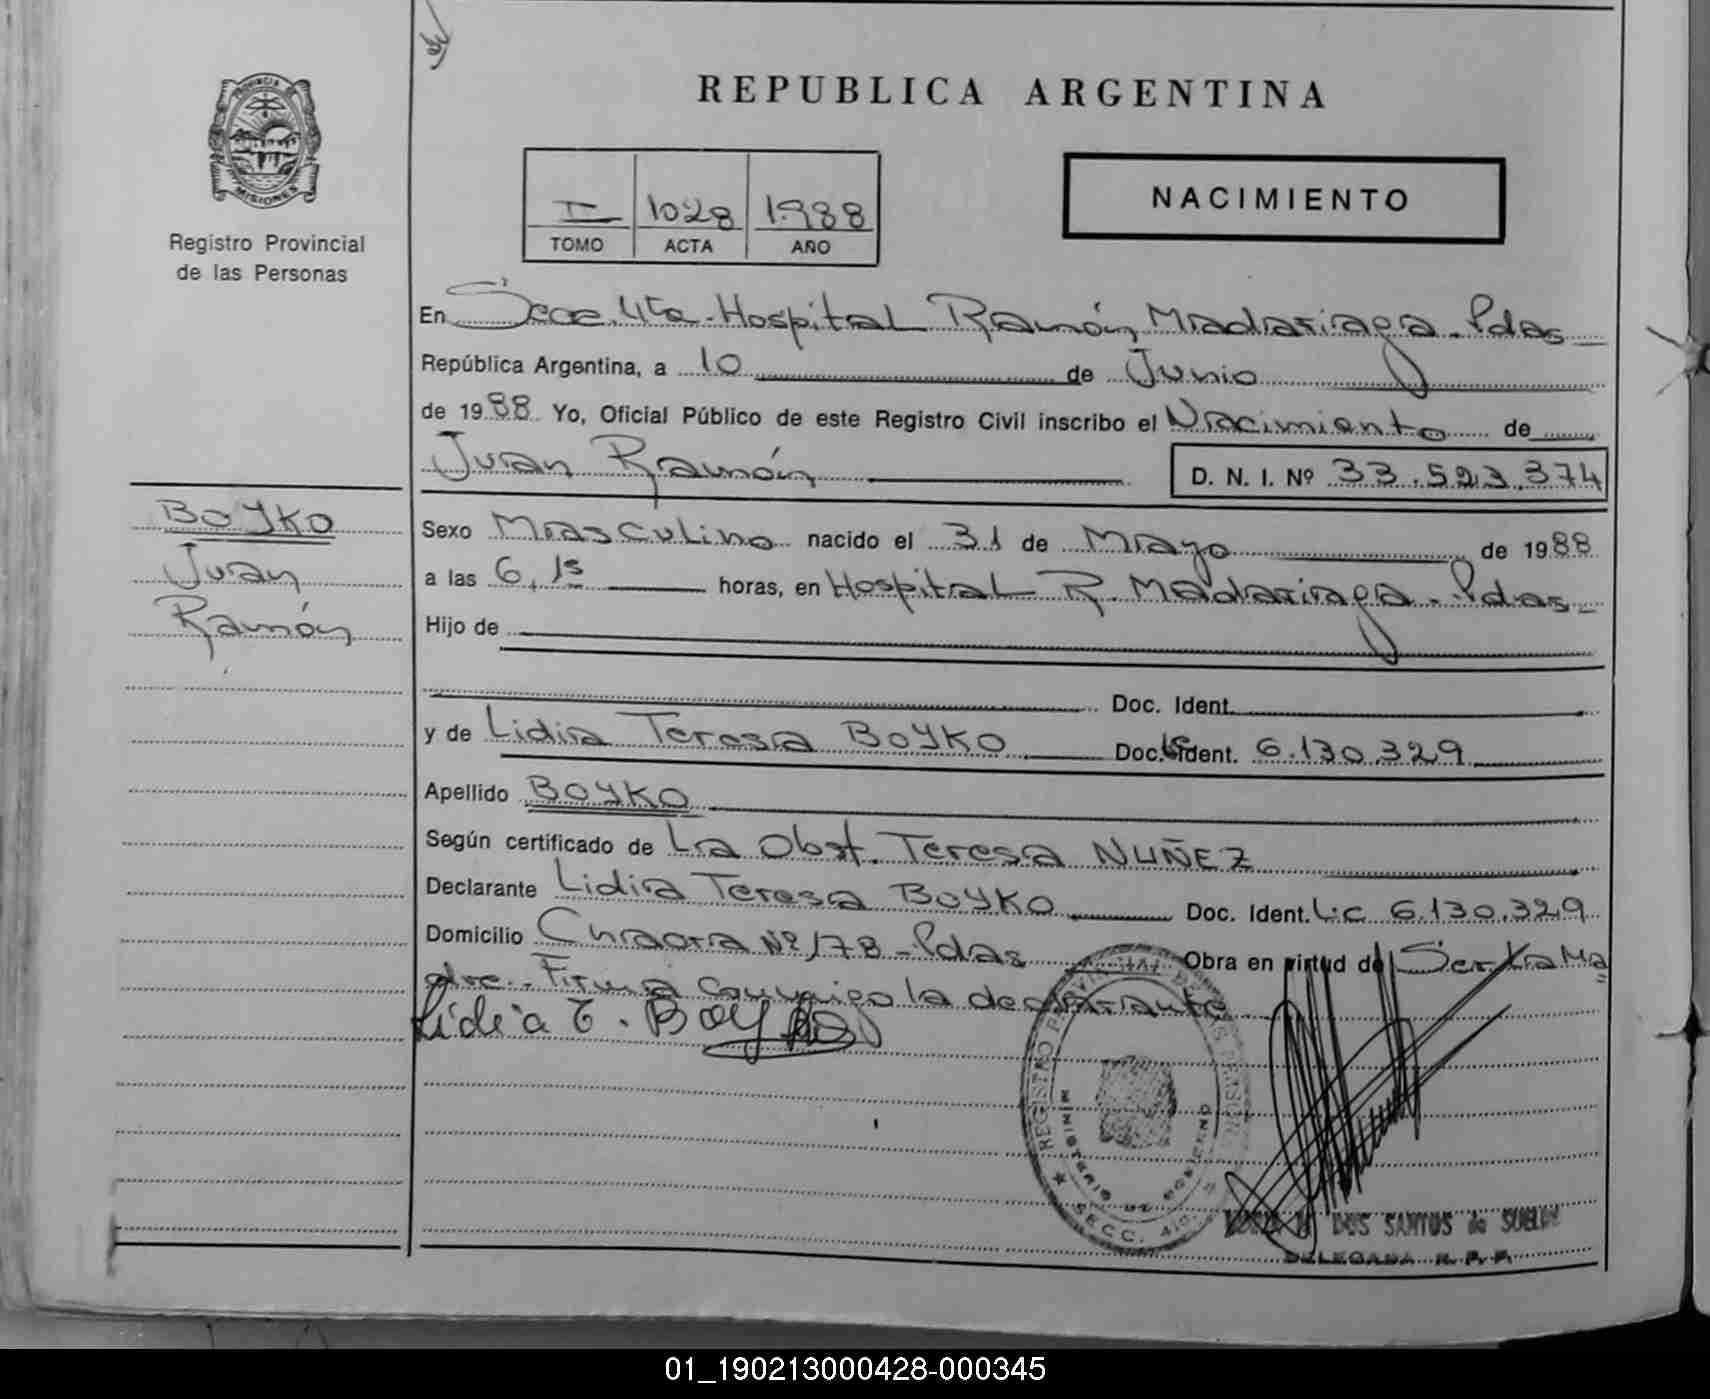 PROVINCIA DE
MISIONES
Registro Provincial
de las Personas
BOYKO
Juan
Ramón
REPUBLICA ARGENTINA
I 1028 1988
TOMO ACTA AÑO
NACIMIENTO
En Secc. 4ta. Hospital Ramón Madariaga. Pdas
República Argentina, a 10 de Junio
de 1988 Yo, Oficial Público de este Registro Civil inscribo el Nacimiento de
Juan Ramón D. N. I. Nº 33.523.374
Sexo Masculino nacido el 31 de Mayo de 1988
a las 6,15 horas, en Hospital R. Madariaga. Pdas
Hijo de
Doc. Ident.
y de Lidia Teresa BOYKO Doc. Ident. 6.130.329
Apellido BOYKO
Según certificado de La Obst. Teresa NUÑEZ
Declarante Lidia Teresa BOYKO Doc. Ident. L.C 6.130.329
Domicilio Chacra Nº 178 - Pdas Obra en virtud de Ser la Ma
dre. Firma conmigo la declarante
Lidia T. Boyko
REGISTRO PROVINCIAL DE LAS PERSONAS
MINISTERIO DE GOBIERNO
SECC. 4ta.
DOS SANTOS de
DELEGADA R. P. P.
01_190213000428-000345